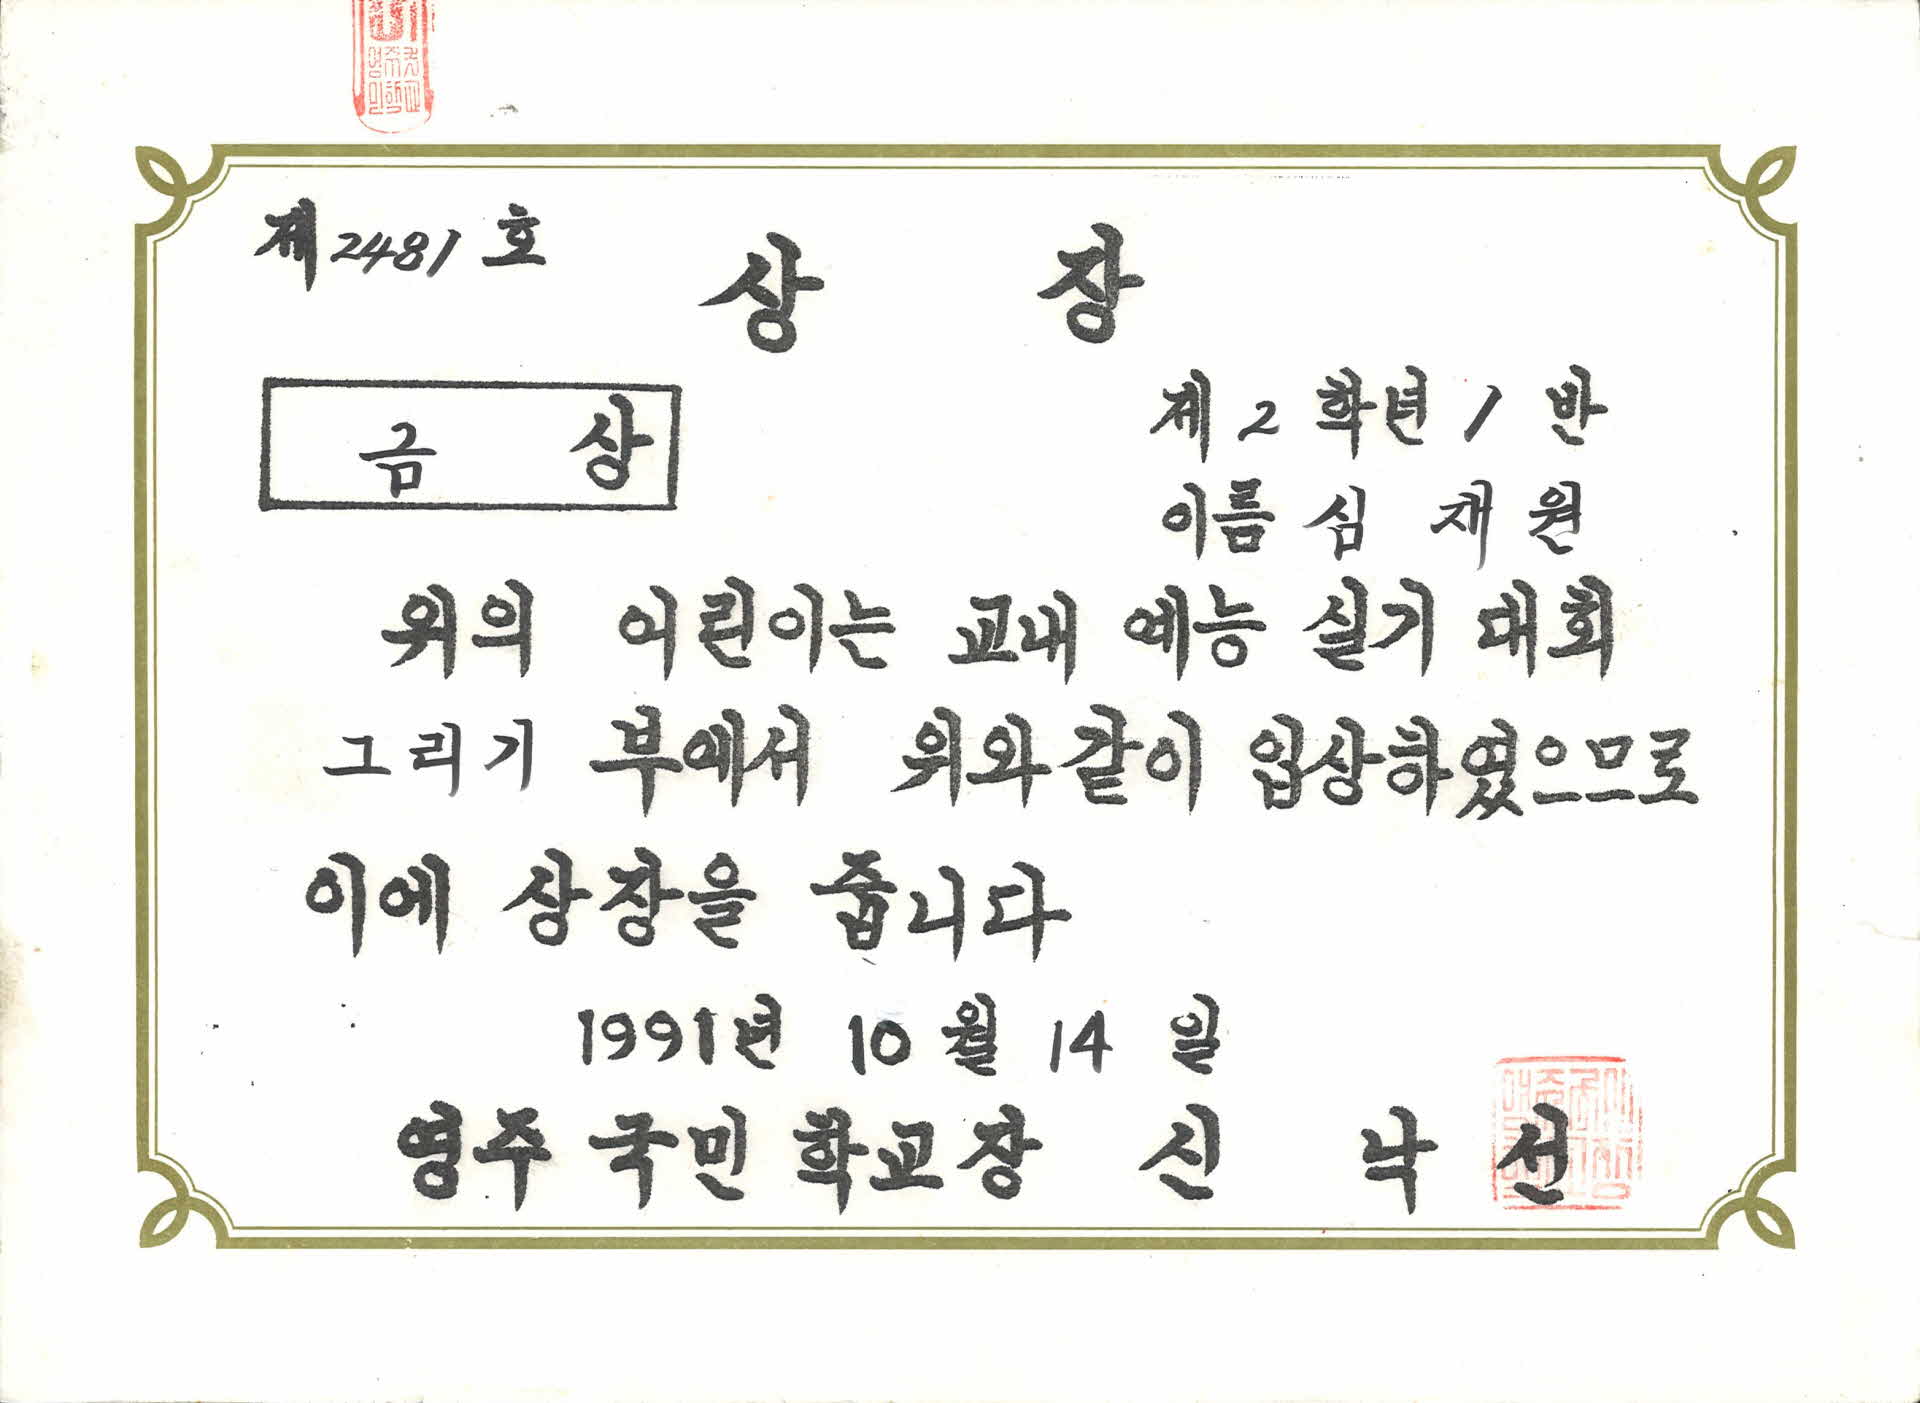 제 2481 호
상 장
금 상
제 2 학년 1 반
이름 심 재 원
위의 어린이는 교내 예능 실기 대회
그리기 부에서 위와같이 입상하였으므로
이에 상장을 줍니다
1991년 10 월 14 일
영주 국민 학교장 신 낙 선